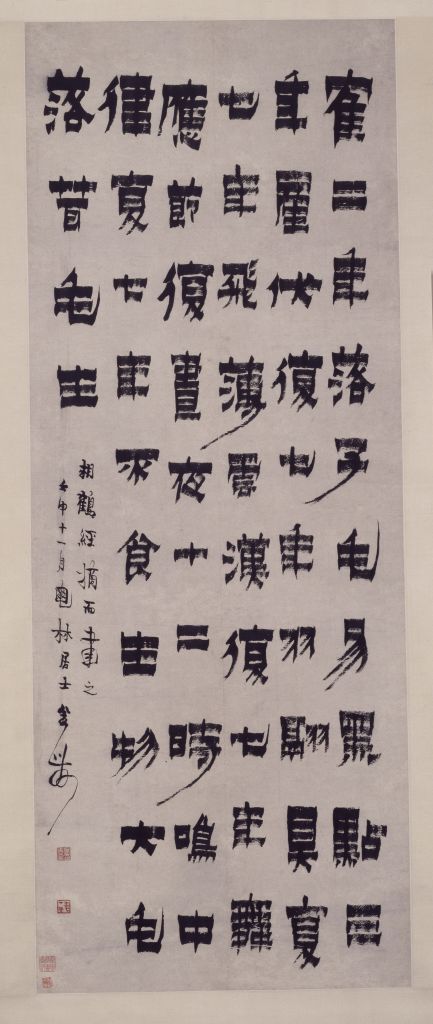 隺二年落子毛易黑點三
年產伏復七年羽翮具复
七年飛薄雲漢復七年舞
應節復晝夜十二時鳴中
律复七年不食生物大毛
落茸毛生
相鶴經摘而書之
壬申十一月林居士金農